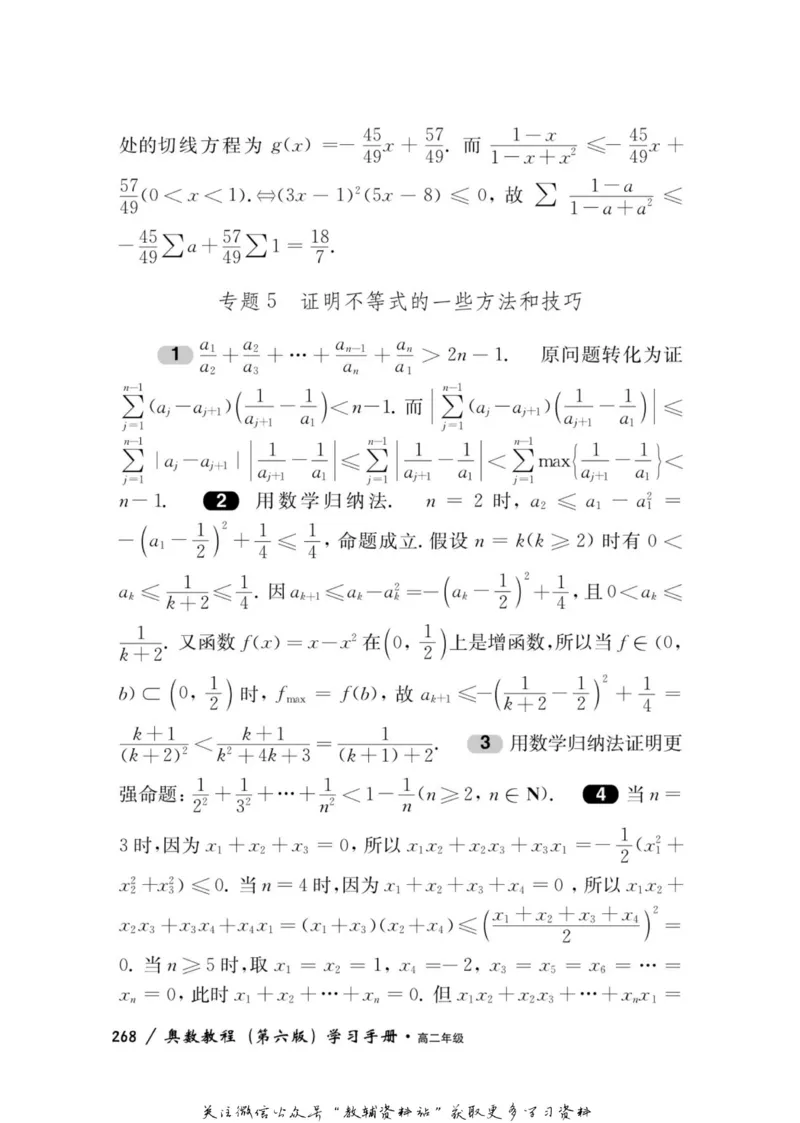 处的切线方程为 g(x) =-45/49 x + 57/49. 而 (1-x)/(1-x+x²) ≤ -45/49 x +
57/49 (0<x<1).⇔(3x-1)²(5x-8)≤0, 故 ∑ (1-a)/(1-a+a²) ≤
-45/49 ∑a + 57/49 ∑1 = 18/7.
专题 5 证明不等式的一些方法和技巧
1 a₁/a₂ + a₂/a₃ +…+ aₙ₋₁/aₙ + aₙ/a₁ > 2n-1. 原问题转化为证
∑_{j=1}^{n-1} (a_j-a_{j+1})(1/a_{j+1} - 1/a₁)<n-1. 而 |∑_{j=1}^{n-1} (a_j-a_{j+1})(1/a_{j+1} - 1/a₁)| ≤
∑_{j=1}^{n-1} |a_j-a_{j+1}| |1/a_{j+1} - 1/a₁| ≤ ∑_{j=1}^{n-1} |1/a_{j+1} - 1/a₁| < ∑_{j=1}^{n-1} max{1/a_{j+1} - 1/a₁} <
n-1. 2 用数学归纳法. n = 2 时, a₂ ≤ a₁ - a₁² =
-(a₁ - 1/2)² + 1/4 ≤ 1/4, 命题成立. 假设 n = k(k ≥ 2) 时有 0 <
a_k ≤ 1/(k+2) ≤ 1/4. 因 a_{k+1} ≤ a_k-a_k² =-(a_k - 1/2)² + 1/4, 且 0<a_k ≤
1/(k+2). 又函数 f(x) = x-x² 在 (0, 1/2) 上是增函数,所以当 f∈(0,
b) ⊂ (0, 1/2) 时, f_max = f(b), 故 a_{k+1} ≤-(1/(k+2) - 1/2)² + 1/4 =
(k+1)/(k+2)² < (k+1)/(k²+4k+3) = 1/((k+1)+2). 3 用数学归纳法证明更
强命题: 1/2² + 1/3² +…+ 1/n² < 1 - 1/n (n≥2, n∈N). 4 当 n =
3 时,因为 x₁+x₂+x₃ = 0, 所以 x₁x₂+x₂x₃+x₃x₁ =-1/2 (x₁²+
x₂²+x₃²)≤0. 当 n = 4 时,因为 x₁+x₂+x₃+x₄ = 0 , 所以 x₁x₂+
x₂x₃+x₃x₄+x₄x₁ = (x₁+x₃)(x₂+x₄)≤((x₁+x₂+x₃+x₄)/2)² =
0. 当 n≥5 时,取 x₁ = x₂ = 1, x₄ =-2, x₃ = x₅ = x₆ = … =
xₙ = 0, 此时 x₁+x₂+…+xₙ = 0. 但 x₁x₂+x₂x₃+…+xₙx₁ =
268 / 奥数教程(第六版)学习手册·高二年级
关注微信公众号“教辅资料站”获取更多学习资料